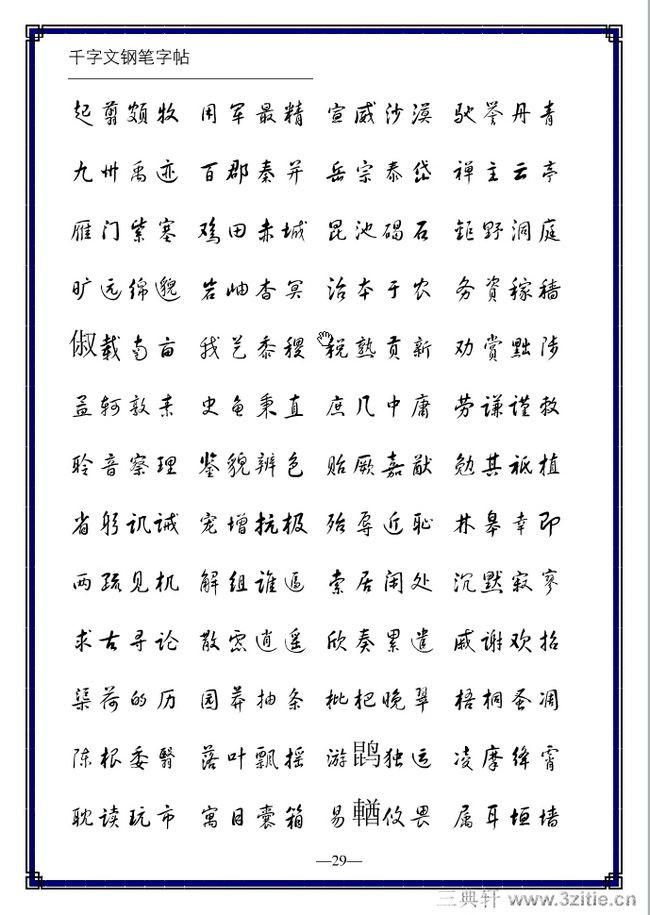 千字文钢笔字帖
起翦颇牧 用军最精 宣威沙漠 驰誉丹青
九州禹迹 百郡秦并 岳宗泰岱 禅主云亭
雁门紫塞 鸡田赤城 昆池碣石 钜野洞庭
旷远绵邈 岩岫杳冥 治本于农 务资稼穑
俶载南亩 我艺黍稷 税熟贡新 劝赏黜陟
孟轲敦素 史鱼秉直 庶几中庸 劳谦谨敕
聆音察理 鉴貌辨色 贻厥嘉猷 勉其祗植
省躬讥诫 宠增抗极 殆辱近耻 林皋幸即
两疏见机 解组谁逼 索居闲处 沉默寂寥
求古寻论 散虑逍遥 欣奏累遣 戚谢欢招
渠荷的历 园莽抽条 枇杷晚翠 梧桐蚤凋
陈根委翳 落叶飘摇 游鹍独运 凌摩绛霄
耽读玩市 寓目囊箱 易輶攸畏 属耳垣墙
—29—
三典轩 www.3zitie.cn